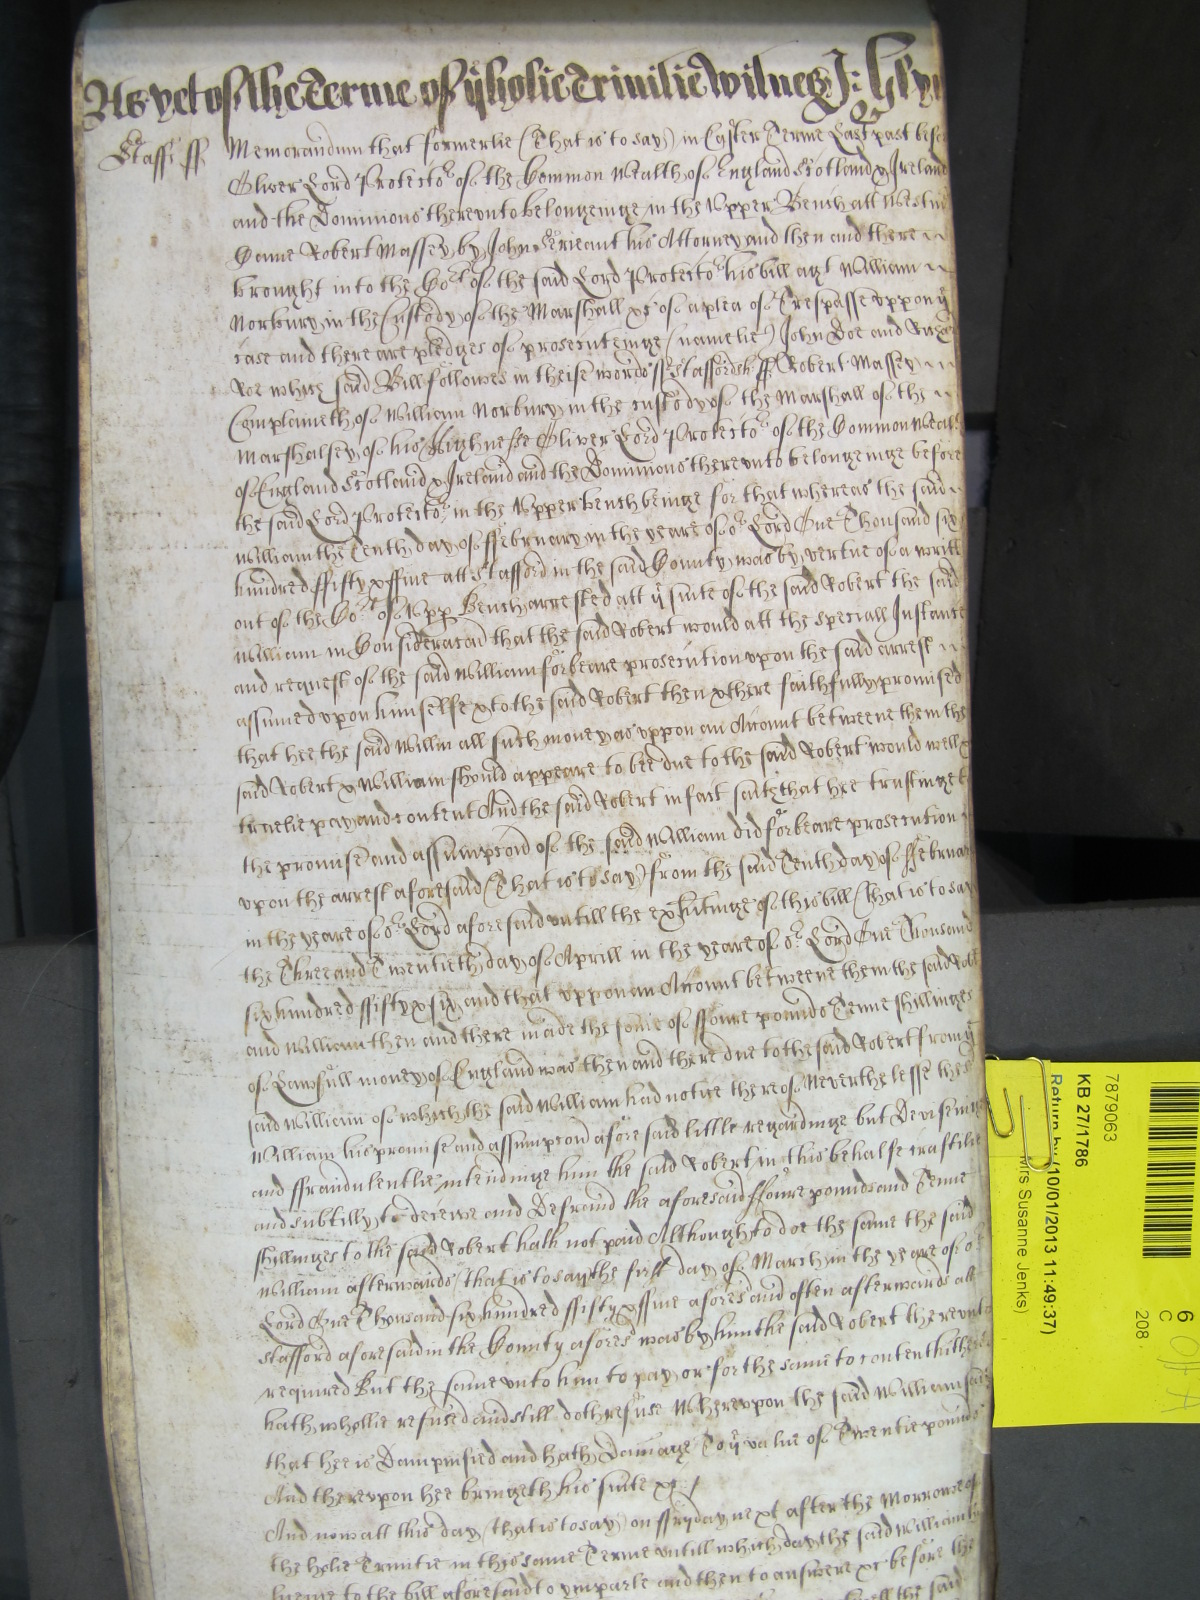 As yet of the Terme of ye holie Trinitie Witnes J: Glyn
Staff ss
Memorandum that formerlie (That is to say) in Easter Terme Last past befo
Oliver Lord Protector of the Common Wealth of England Scotland & Ireland
and the Dominions therevnto belongeinge in the Vpper Bench att Westm
Came Robert Massey by John his Attorney and then and there
brought into the Cort of the said Lord Protector his bill agt William
Norbury in the Custody of the Marshall &c of a plea of Trespasse vppon ye
case and there are pledges of prosecuteinge (namelie) John Doe and Rich
Roe which said Bill followes in theise words ss Staffordsh ss Robert Massey
Complaineth of William Norbury in the custody of the Marshall of the
Marshalsey of his Highnesse Oliver Lord Protector of the Common Wealth
of England Scotland & Ireland and the Dominions therevnto belongeinge before
the said Lord Protector in the Vpper bench beinge for that whereas the said
William the Tenth day of ffebruary in the yeare of or Lord One Thousand six
hundred ffifty & ffiue att Stafford in the said County was by vertue of a writt
out of the Cort of Vpp Bench arrested att ye suite of the said Robert the said
William in Consideracon that the said Robert would att the speciall Instance
and request of the said William forbeare prosecution vpon the said arrest
assumed vpon himselfe & to the said Robert then & there faithfully promised
that hee the said Willm all such moneyas vppon an Account betweene them the
said Robert & William should appeare to bee due to the said Robert would well &
truelie pay and content And the said Robert in fact saith that hee trustinge to
the promise and assumpcon of the said William did forbeare prosecution
vpon the arrest aforesaid (That is to say) from the said Tenth day of ffebruar
in the yeare of or Lord aforesaid vntill the exhibitinge of this bill (That is to say
the Three and Twentieth day of Aprill in the yeare of or Lord One Thousand
six hundred ffifty & six and that vppon an Account betweene them the said Robt
and William then and there made the some of ffoure pounds Tenne shillinges
of Lawfull money of England was then and there due to the said Robert from ye
said William of which the said William had notice thereof Neverthelesse the sd
William his promise and assumpcon aforesaid little regardinge but Deviseinge
and ffraudulentlie intendinge him the said Robert in this behalfe craftilie
and subtilly to deceive and Defraud the aforesaid ffoure pounds and Tenne
shillinges to the said Robert hath not paid Although to doe the same the said
William afterwards (that is to say) the first day of March in the yeare of or
Lord One Thousand six hundred ffifty & ffiue aforesd and often afterwards att
Stafford aforesaid in the County aforesd was by him the said Robert therevnto
required But the same vnto him to pay or for the same to content hitherto
hath whollie refused and still doth refuse Wherevpon the said William saith
that hee is Dampnified and hath Damage To ye value of Twentie pounds
And therevpon hee bringeth his suite &c /
And now att this day (that is to say) on ffryday next after the Morrowe of
the holie Trinitie in this same Terme vntill which day the said William
to the bill aforesaid to ymparle and then to answere &c before the
the said
7879063
KB 27/1786
Return by (10/01/2013 11:49:37)
Mrs Susanne Jenks)
6
C
208